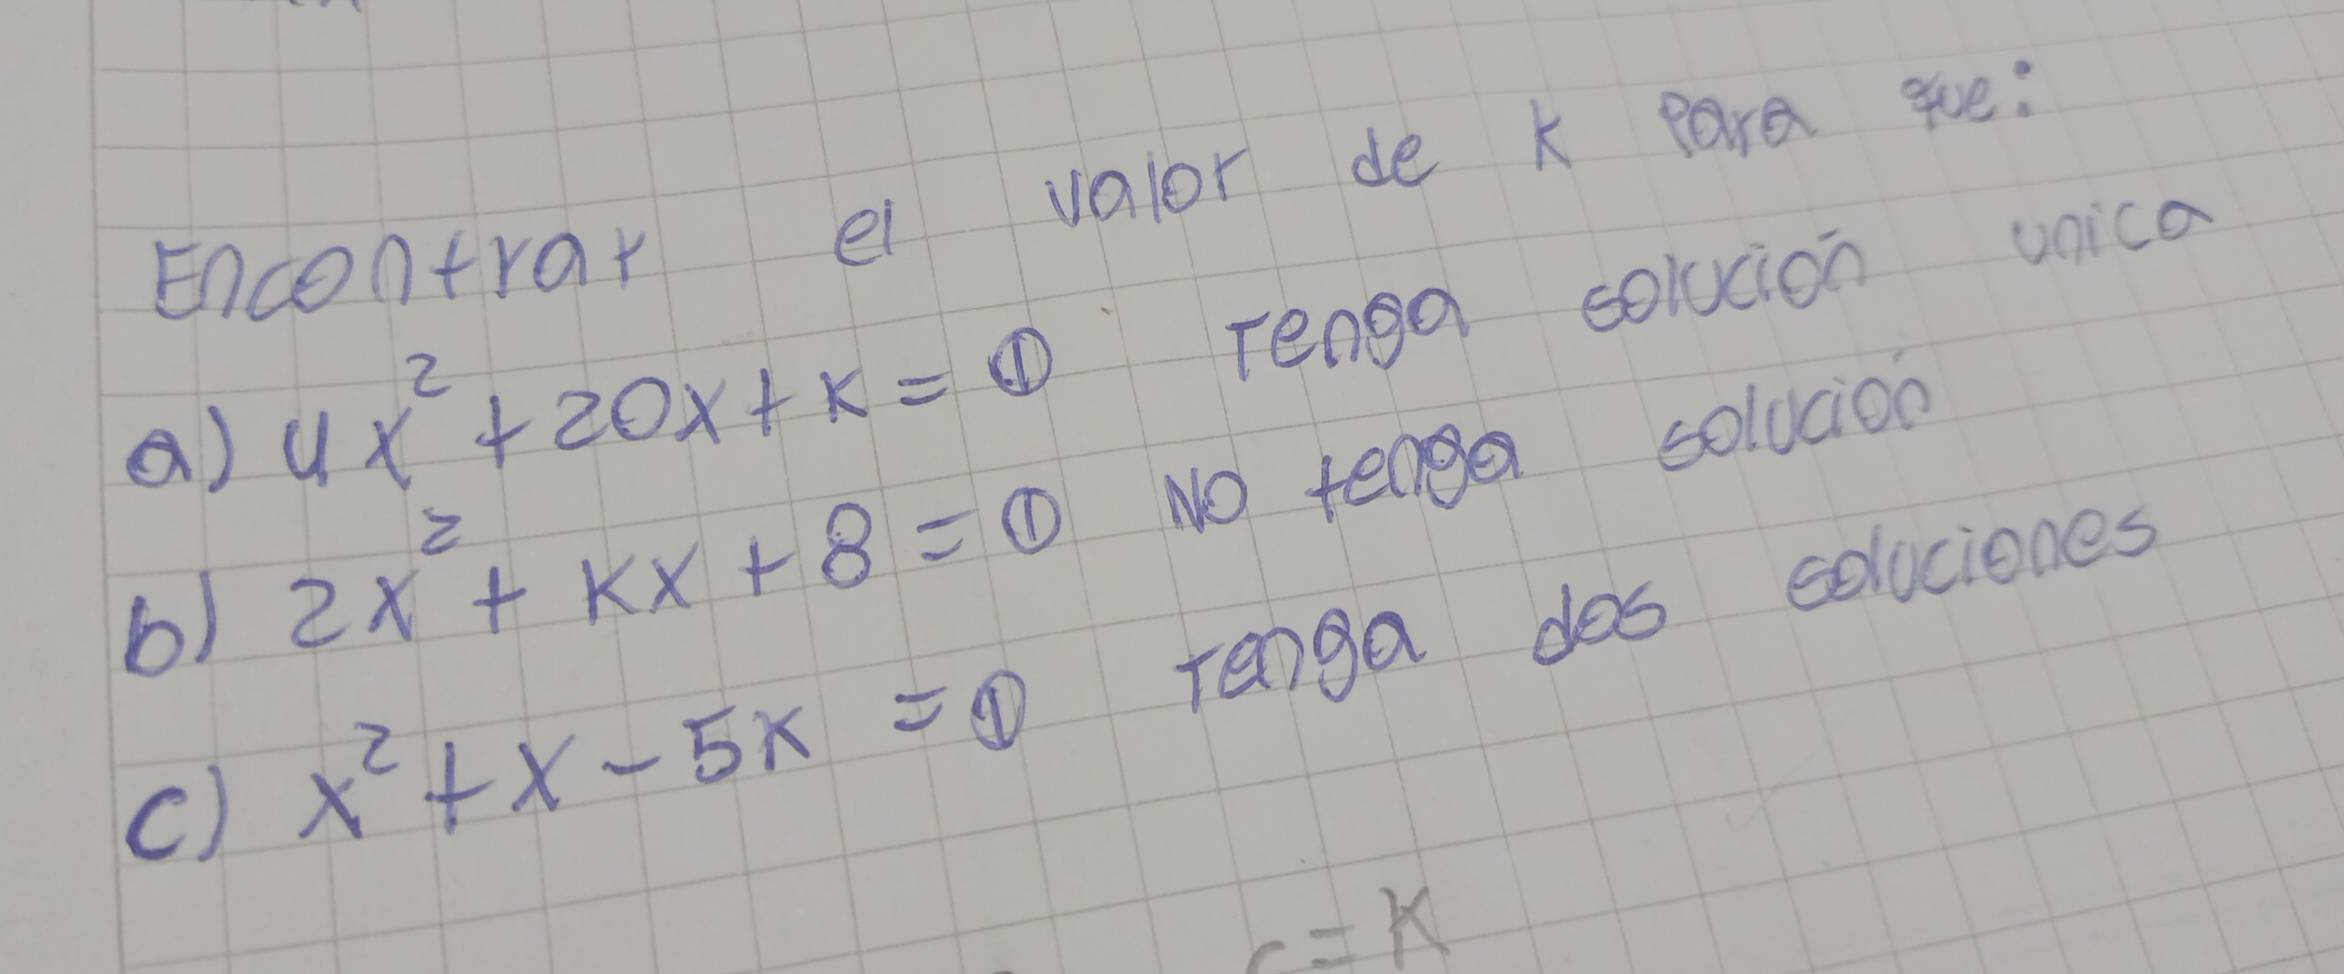 Encontrar el valor de k para que:
a) 4x² + 20x + k = 0 Tenga solución unica
b) 2x² + kx + 8 = 0 No tenga solución
c) x² + x - 5k = 0 Tenga dos soluciones
c = k